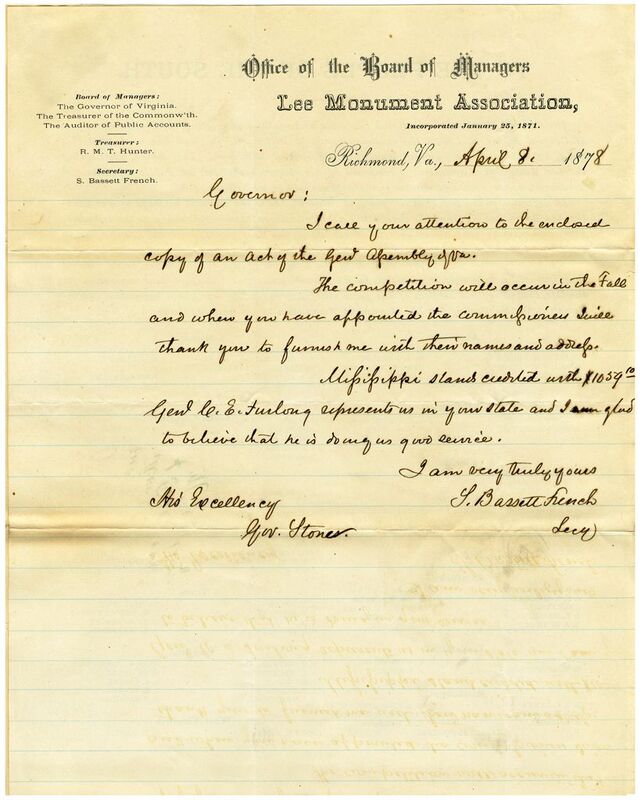 Office of the Board of Managers
Lee Monument Association,
Incorporated January 25, 1871.
Board of Managers:
The Governor of Virginia.
The Treasurer of the Commonw'th.
The Auditor of Public Accounts.
Treasurer:
R. M. T. Hunter.
Secretary:
S. Bassett French.
Richmond, Va., April 8. 1878
Governor:
I call your attention to the enclosed
copy of an Act of the Genl Assembly of Va.
The competition will occur in the Fall
and when you have appointed the commissioners I will
thank you to furnish me with their names and address.
Mississippi stands credited with $1059 10
Genl C. E. Furlong represents us in your state and I am glad
to believe that he is doing us good service.
I am very truly yours
S. Bassett French
Secy
His Excellency
Gov. Stone.